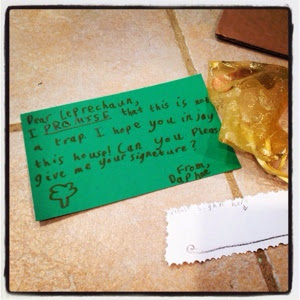 Dear Leprechaun,
I PROMISE that this is not
a trap. I hope you injoy
this house! Can you Pleas
give me your signeture?
From,
Daphne